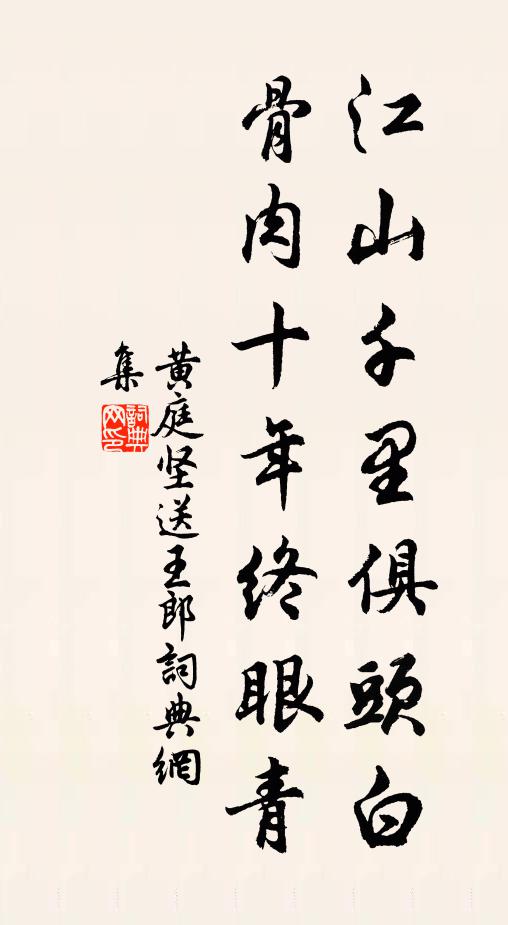 江山千里俱頭白
骨肉十年终眼青
黄庭坚送王郎詞典網
集
詞典
网印